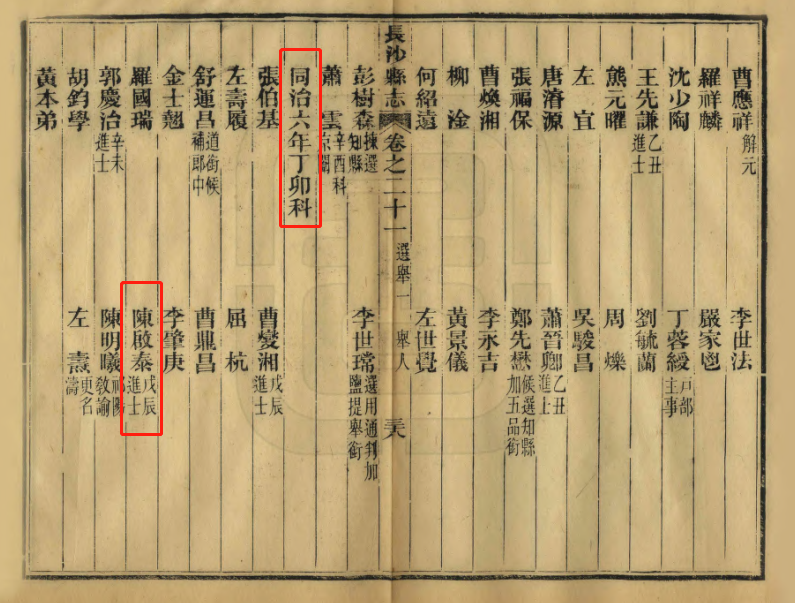 曹應祥 解元 李世法
羅祥麟 嚴家鬯
沈少陶 丁蓉綬 戶部主事
王先謙 乙丑進士 劉毓蘭
熊元曜 周爍
左宜 吳駿昌
唐濬源 蕭晉卿 乙丑進士
張福保 鄭先懋 候選知縣加五品銜
曹煥湘 李永吉
柳淦 黃景儀
何紹遠 左世覺
長沙縣志 卷之二十一 選舉一 舉人 三天
彭樹森 揀選知縣 李世璸 選用通判加鹽提舉銜
蕭雲 辛酉科京闈
同治六年丁卯科
張伯基 曹燮湘 戊辰進士
左壽履 屈杭
舒運昌 道銜候補郎中 曹鼎昌
金士翹 李肇庚
羅國瑞 陳啟泰 戊辰進士
郭慶治 辛未進士 陳明曦 祁陽敎諭
胡鈞學 左燾 更名濤
黃本弟